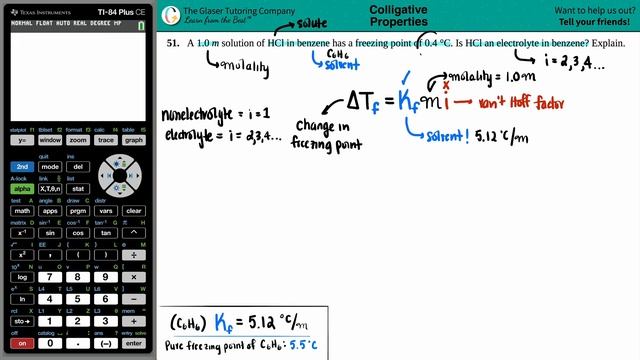 The Glaser Tutoring Company
Learn from the Best™
Colligative
Properties
Want to help us out?
Tell your friends!
solute
51. A 1.0 m solution of HCl in benzene has a freezing point of 0.4 °C. Is HCl an electrolyte in benzene? Explain.
molality
C6H6
solvent
i = 2,3,4...
molality = 1.0 m
x
ΔTf = Kf m i
van't Hoff factor
nonelectrolyte = i = 1
electrolyte = i = 2,3,4...
change in
freezing point
solvent! 5.12 °C/m
(C6H6) Kf = 5.12 °C/m
Pure freezing point of C6H6: 5.5 °C
TEXAS INSTRUMENTS
TI-84 Plus CE
NORMAL FLOAT AUTO REAL DEGREE MP
statplot f1 tblset f2 format f3 calc f4 table f5
y= window zoom trace graph
quit ins
2nd mode del
A-lock link list
alpha X,T,θ,n stat
test A angle B draw C distr
math apps prgm vars clear
x⁻¹ sin cos tan ^
x² , ( ) ÷
log 7 8 9 ×
ln 4 5 6 −
sto→ 1 2 3 +
on 0 . (−) enter